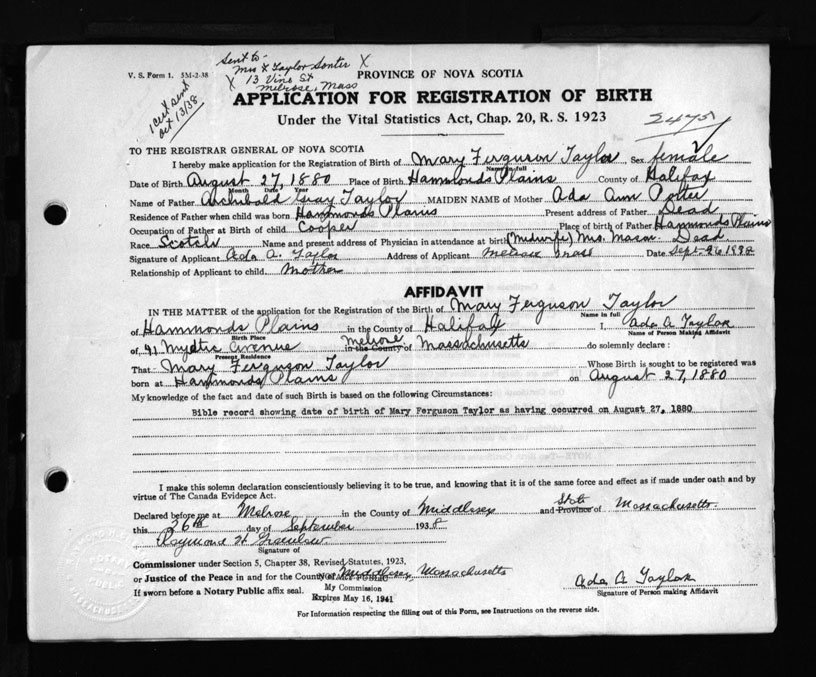 V. S. Form 1. 5M-2-38
Sent to-
Mrs Taylor X
X 13 Vine St
Melrose, Mass
1 cert sent
Oct 13/38
PROVINCE OF NOVA SCOTIA
APPLICATION FOR REGISTRATION OF BIRTH
Under the Vital Statistics Act, Chap. 20, R. S. 1923
TO THE REGISTRAR GENERAL OF NOVA SCOTIA
I hereby make application for the Registration of Birth of Mary Ferguson Taylor Sex female
Name in full
Date of Birth August 27, 1880 Place of Birth Hammonds Plains County of Halifax
Month Date Year
Name of Father Archibald Gray Taylor MAIDEN NAME of Mother Ada Ann
Residence of Father when child was born Hammonds Plains Present address of Father Dead
Occupation of Father at Birth of child Cooper Place of birth of Father Hammonds Plains
Race Scotch Name and present address of Physician in attendance at birth (Midwife) Mrs. Mason Dead
Signature of Applicant Ada A. Taylor Address of Applicant Melrose Mass Date Sept. 26 1938
Relationship of Applicant to child Mother
AFFIDAVIT
IN THE MATTER of the application for the Registration of the Birth of Mary Ferguson Taylor
Name in full
of Hammonds Plains in the County of Halifax I, Ada A Taylor
Birth Place Name of Person Making Affidavit
of, 91 Mystic Avenue Melrose in the County of Massachusetts do solemnly declare :
Present Residence
That Mary Ferguson Taylor Whose Birth is sought to be registered was
born at Hammonds Plains on August 27, 1880
My knowledge of the fact and date of such Birth is based on the following Circumstances:
Bible record showing date of birth of Mary Ferguson Taylor as having occurred on August 27, 1880
I make this solemn declaration conscientiously believing it to be true, and knowing that it is of the same force and effect as if made under oath and by
virtue of The Canada Evidence Act.
Declared before me at Melrose in the County of Middlesex and State Province of Massachusetts
this 26th day of September 1938
Raymond H
Signature of
Commissioner under Section 5, Chapter 38, Revised Statutes, 1923,
or Justice of the Peace in and for the County of Middlesex, Massachusetts
NOTARY PUBLIC
If sworn before a Notary Public affix seal.
My Commission
Expires May 16, 1941
Ada A Taylor
Signature of Person making Affidavit
For Information respecting the filling out of this Form, see Instructions on the reverse side.